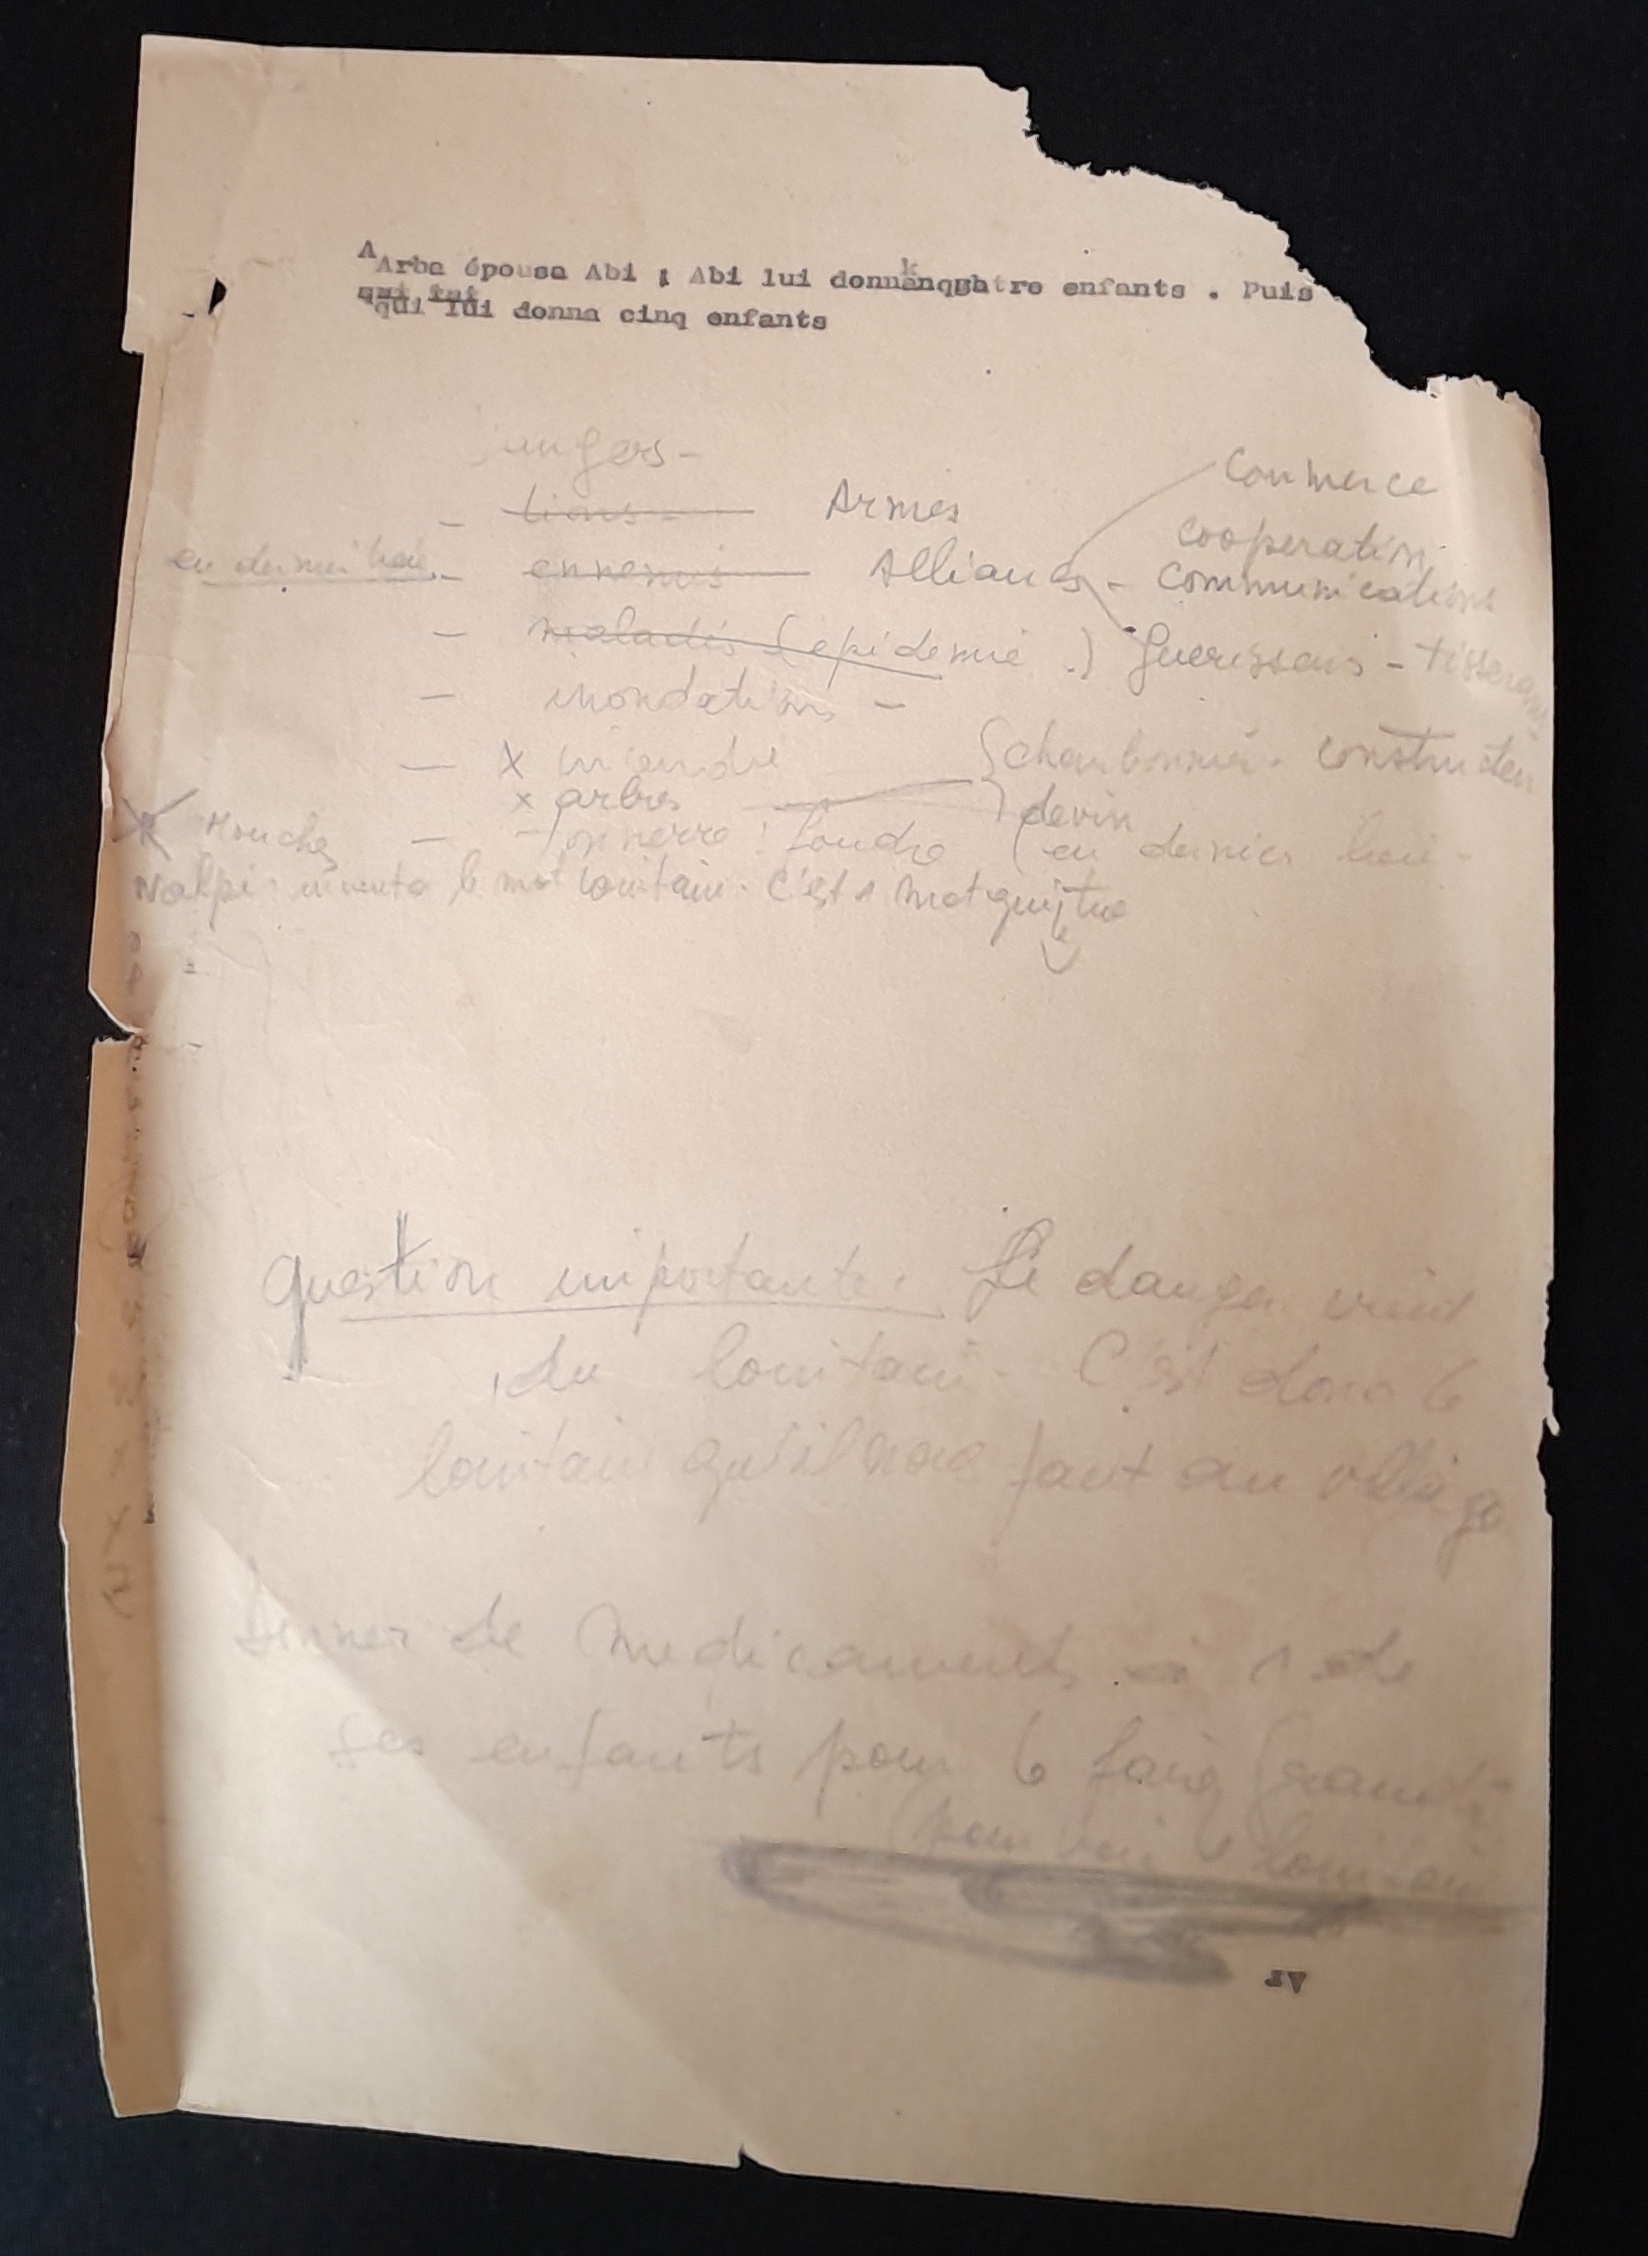 Arba épousa Abi ; Abi lui donna quatre enfants . Puis
qui lui donna cinq enfants
dangers -
- lions - Armes Commerce
cooperation
en dernier lieu - ennemis Alliances - communications
- maladies (epidemie .) Guerisseurs - tisserand
- inondations -
- x incendie charbonnier - constructeur
x arbres devin
Mouches - tonnerre : foudre (en dernier lieu -
Nalpi : inventa le mot lointain. C'est 1 mot qui tue
Question importante : Le danger vient
du lointain - C'est donc le
lointain qu'il nous faut au village
Donner de medicaments à 1 de
ses enfants pour le faire grandir
(pour voir le lointain